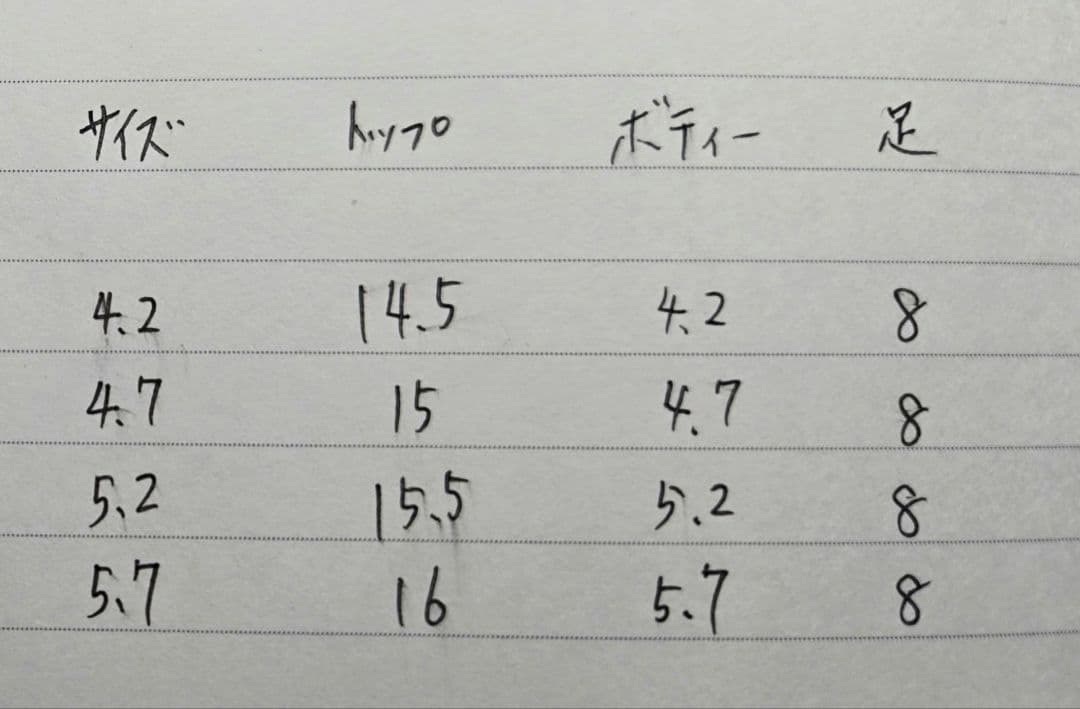 サイズ トップ ボディー 足
4.2 14.5 4.2 8
4.7 15 4.7 8
5.2 15.5 5.2 8
5.7 16 5.7 8